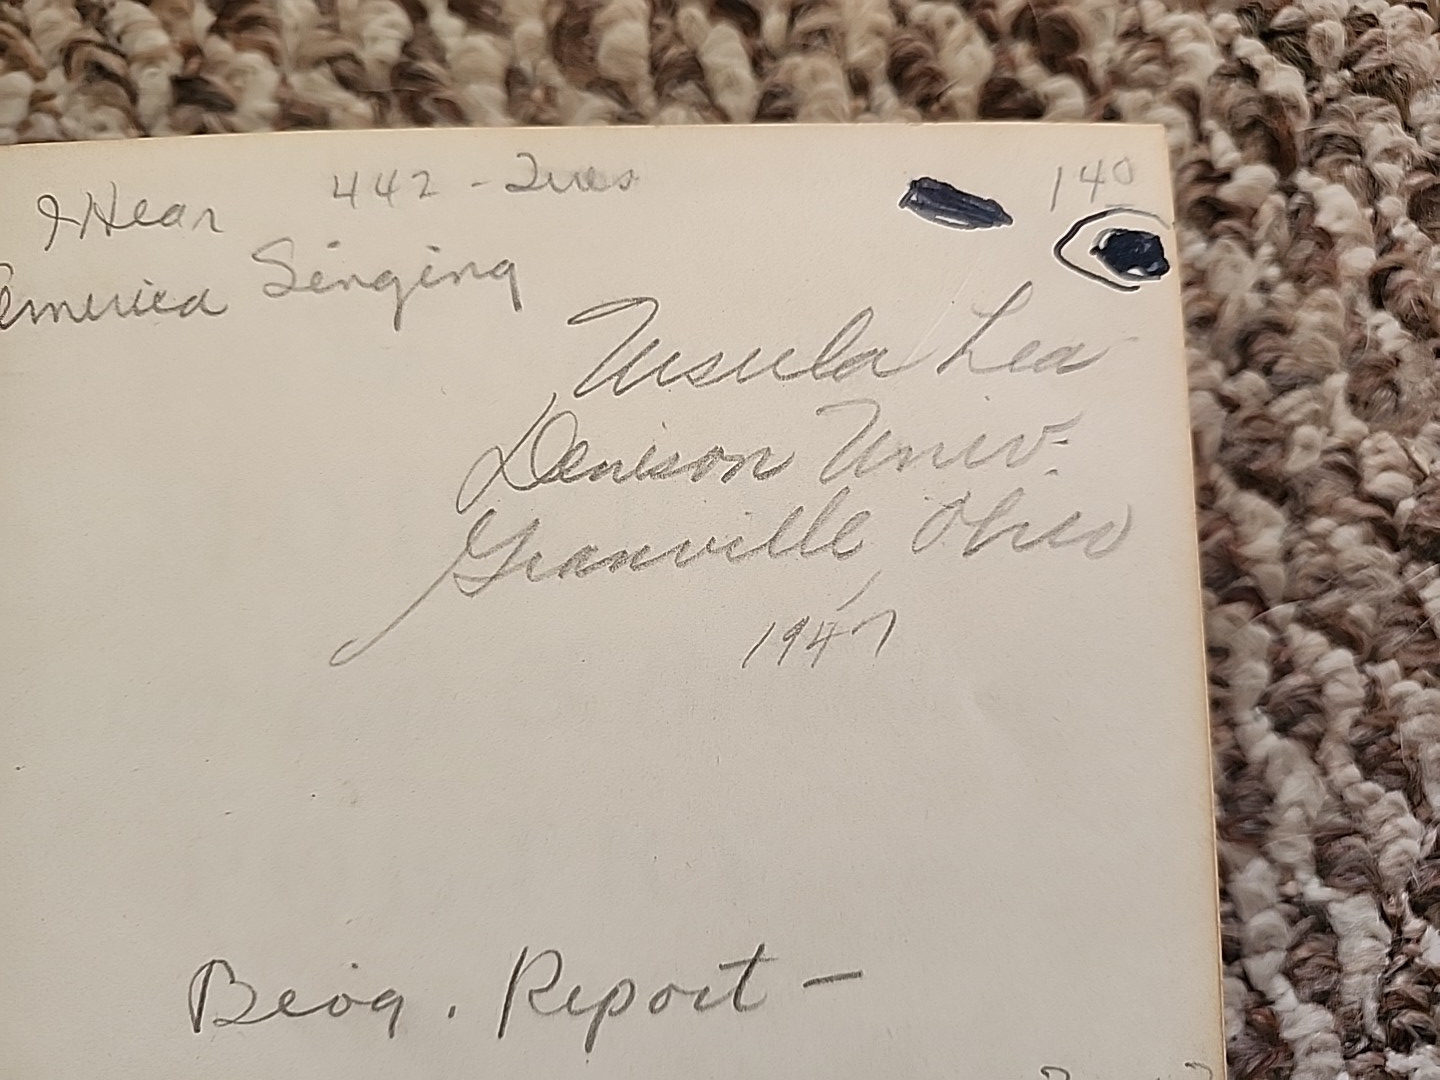 442 - Tues 140
I Hear
America Singing
Ursula Lea
Denison Univ.
Granville, Ohio
1947
Beog. Report –